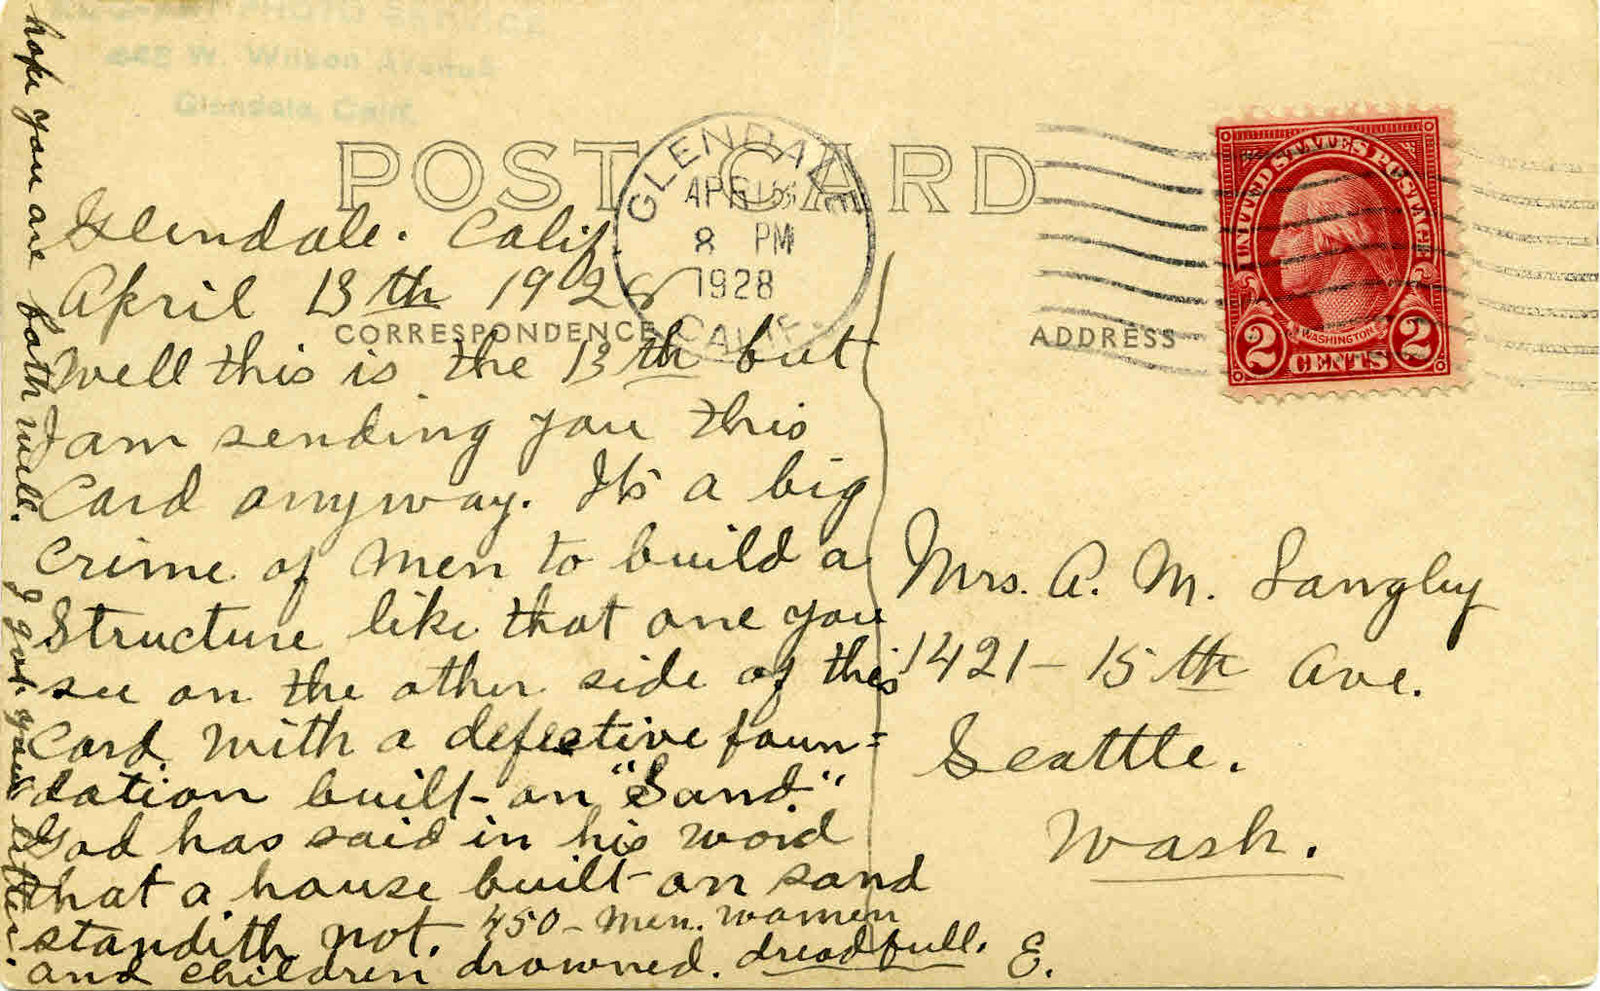 PHOTO SERVICE
W. Wilson Avenue
Glendale, Calif.
POST CARD
GLENDALE
APR 15
8 PM
1928
CALIF.
UNITED STATES POSTAGE
WASHINGTON
2 CENTS 2
CORRESPONDENCE
ADDRESS
Glendale. Calif
April 13th 1928
Well this is the 13th but
I am sending you this
Card anyway. It's a big
Crime of Men to build a
Structure like that one you
see on the other side of this
Card with a defective foun=
dation built-on "Sand"
God has said in his word
that a house built-on sand
standith not. 450- Men. Women
and children drowned. dreadfull. E.
hope you are both well. I got your letter.
Mrs. A. M. Langley
1421- 15th Ave.
Seattle.
Wash.